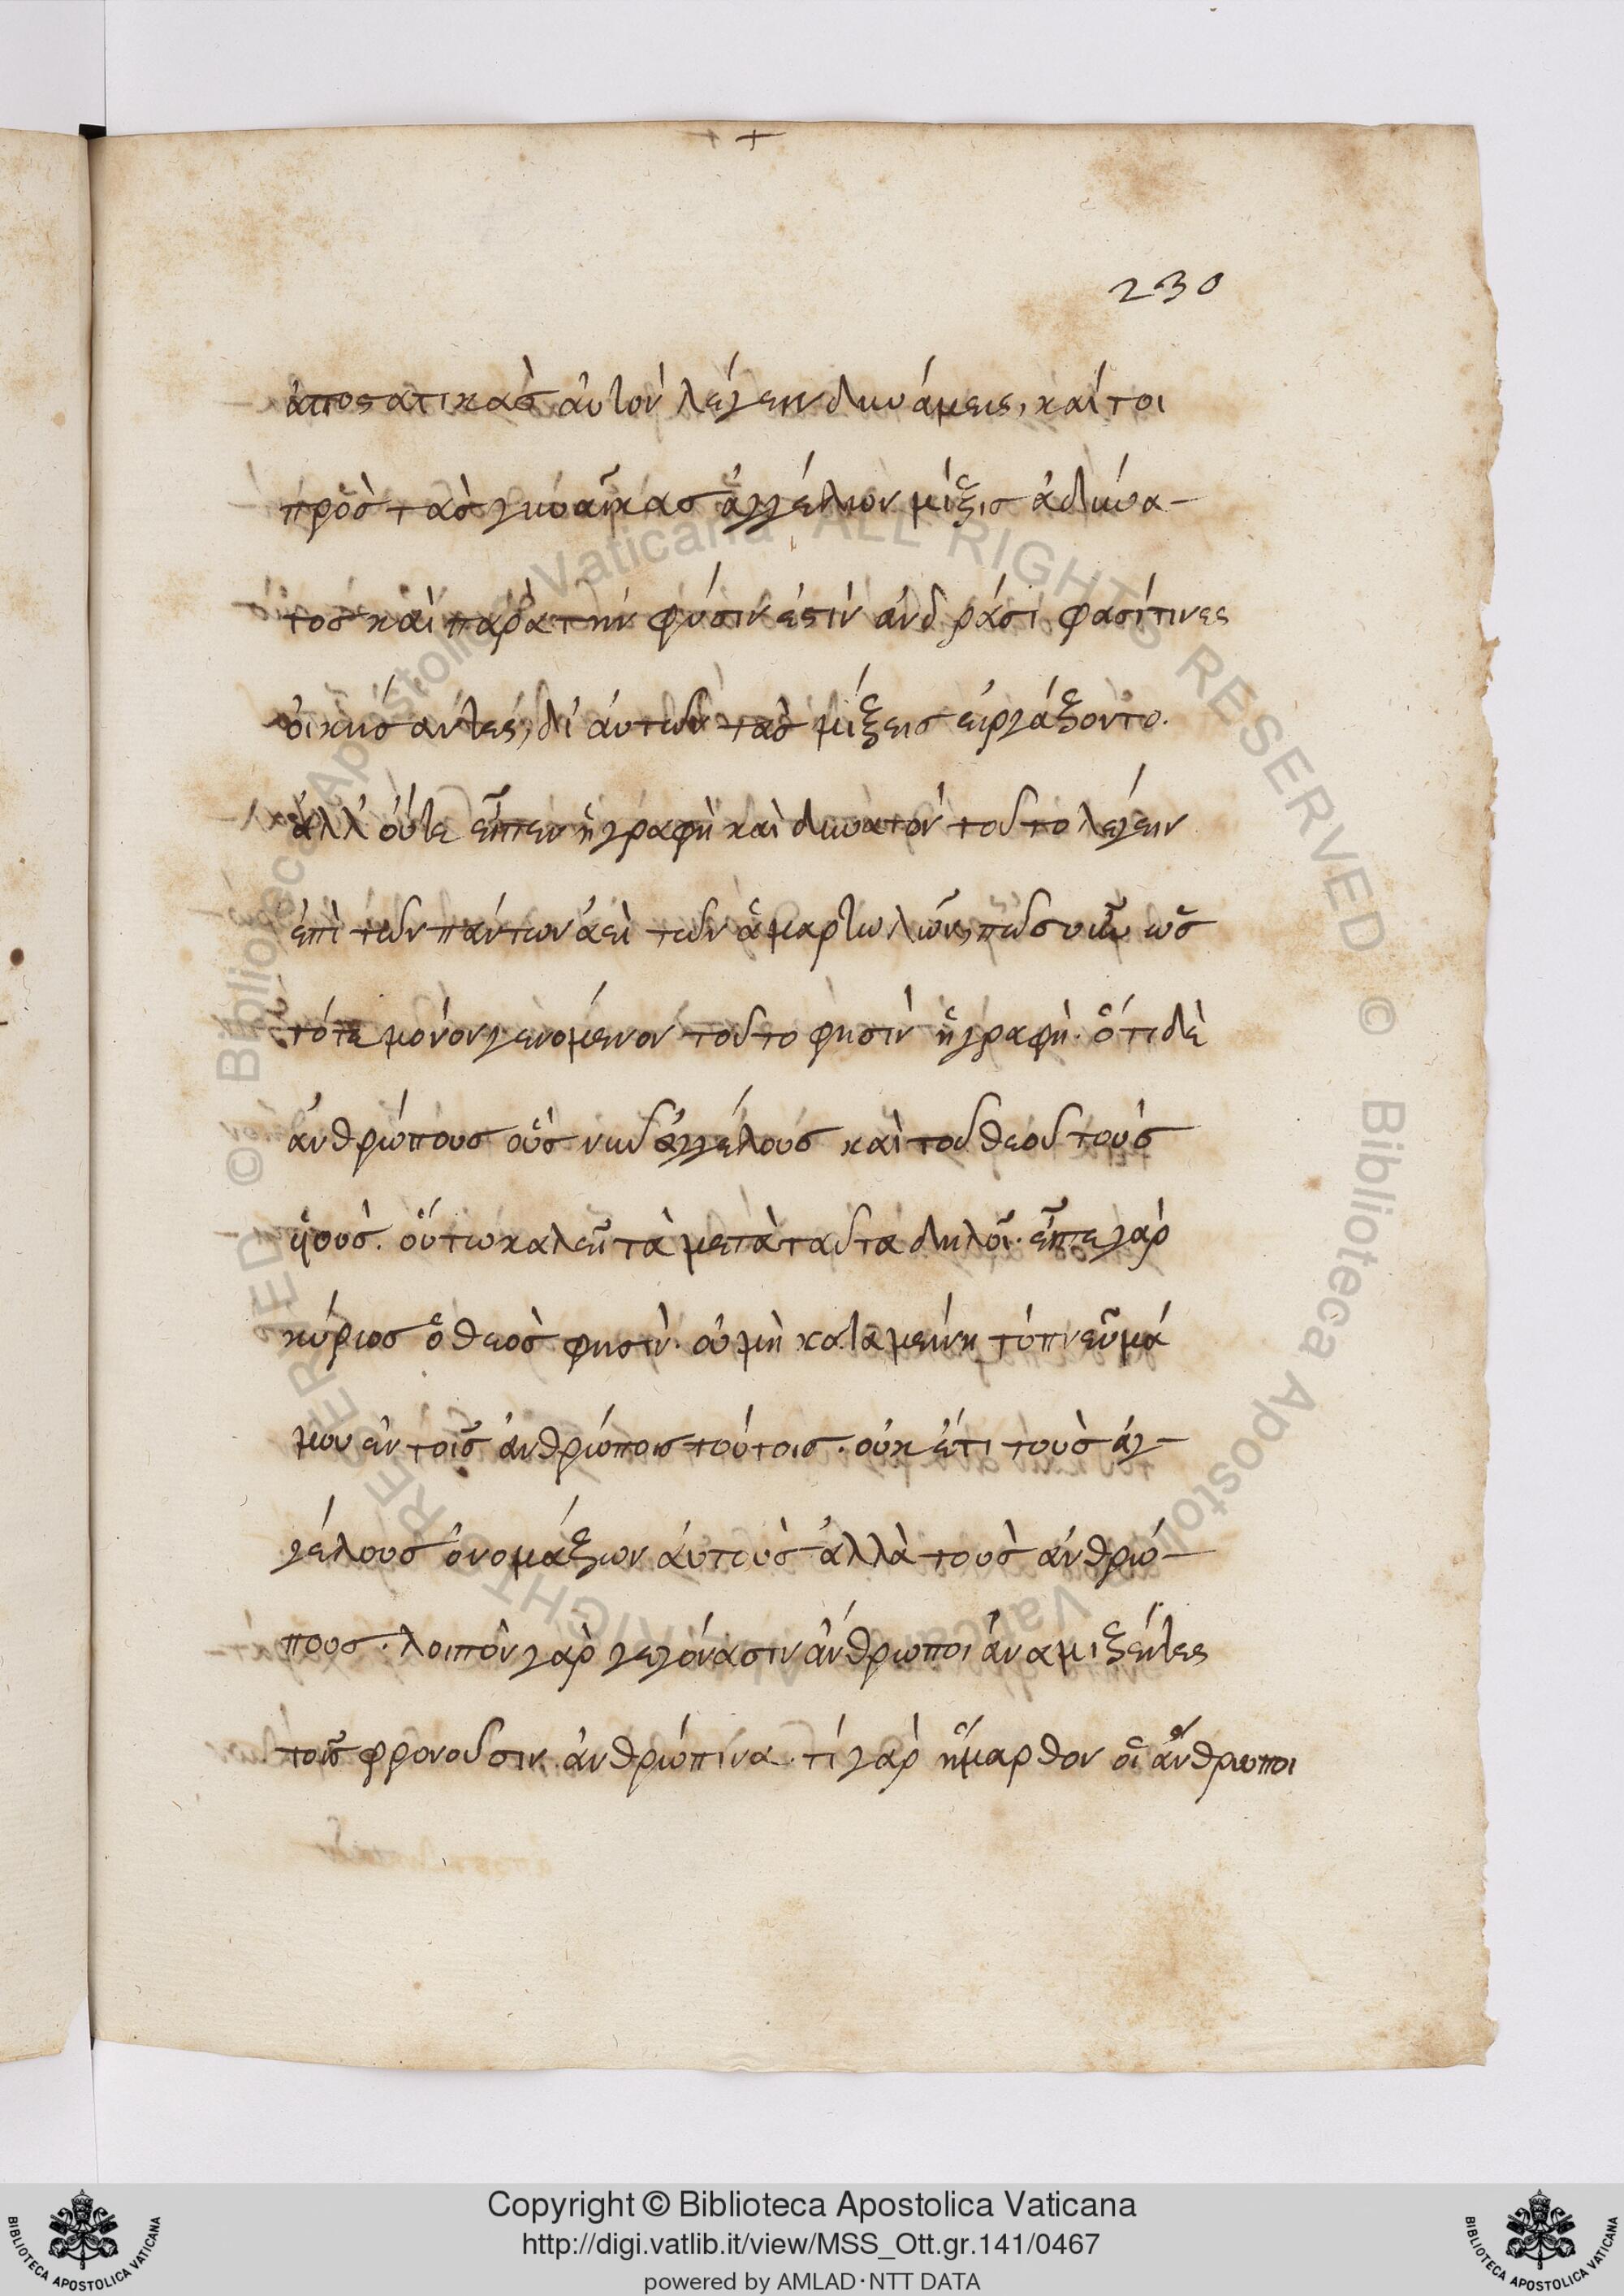 230
ἀποστατικὰς αὐτὸν λέγειν δυνάμεις, καίτοι
πρὸς τὰς γυναῖκας ἀγγέλων μίξις ἀδύνα-
τος καὶ παρὰ τὴν φύσιν ἐστὶν ἀνδράσι φασί τινες
οἰκήσαντες, δι' αὐτῶν τὰς μίξεις εἰργάξοντο.
ἀλλ' οὔτε εἶπεν ἡ γραφὴ καὶ δυνατὸν τοῦτο λέγειν
ἐπὶ τῶν πάντων ἀεὶ τῶν ἁμαρτωλῶν, πῶς οὖν ὡς
τότε μόνον γενόμενον τοῦτο φησὶν ἡ γραφὴ. ὅτι δὲ
ἀνθρώπους οὓς νῦν ἀγγέλους καὶ τοῦ θεοῦ τοὺς
υἱούς. οὕτω καλεῖ τὰ μετὰ ταῦτα δηλοῖ. εἶπε γὰρ
κύριος ὁ θεὸς φησὶν. οὐ μὴ καταμείνη τὸ πνεῦμά
μου ἐν τοῖς ἀνθρώποις τούτοις. οὐκ ἔτι τοὺς ἀγ-
γέλους ὀνομάξων αὐτοὺς ἀλλὰ τοὺς ἀνθρώ-
πους. λοιπὸν γὰρ γεγόνασιν ἄνθρωποι ἀναμιξέντες
τοῖς φρονοῦσιν ἀνθρώπινα. τί γὰρ ἥμαρθον οἱ ἄνθρωποι
Copyright © Biblioteca Apostolica Vaticana
http://digi.vatlib.it/view/MSS_Ott.gr.141/0467
powered by AMLAD·NTT DATA
BIBLIOTECA APOSTOLICA VATICANA
BIBLIOTECA APOSTOLICA VATICANA
© Biblioteca Apostolica Vaticana ALL RIGHTS RESERVED © Biblioteca Apostolica Vaticana ALL RIGHTS RESERVED